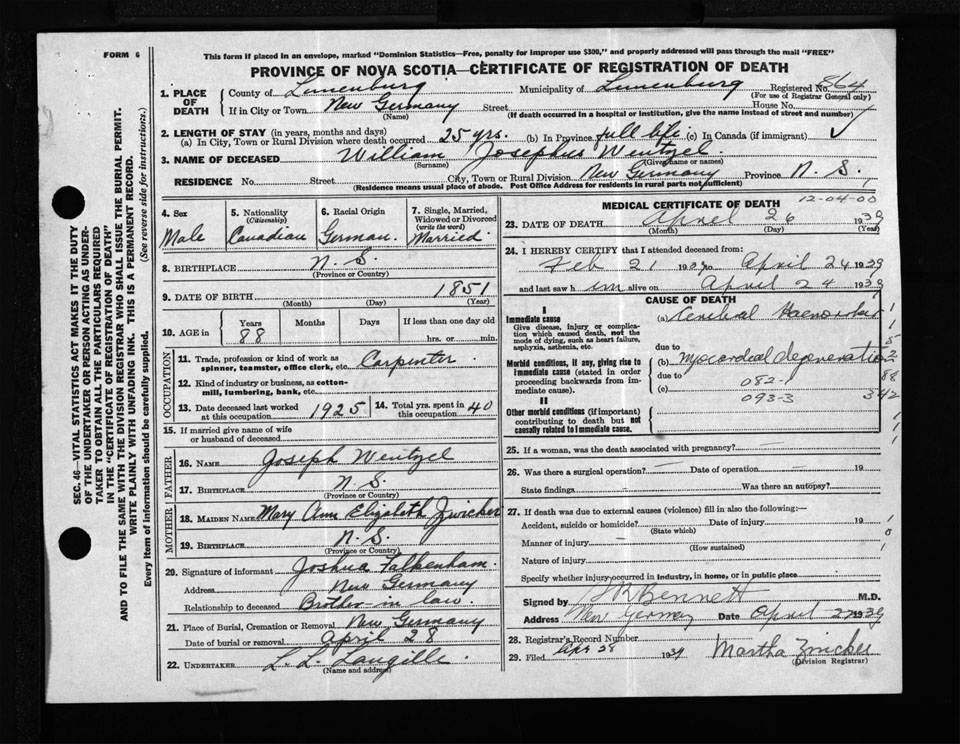 FORM 6
This form if placed in an envelope, marked "Dominion Statistics—Free, penalty for improper use $300," and properly addressed will pass through the mail "FREE"
PROVINCE OF NOVA SCOTIA—CERTIFICATE OF REGISTRATION OF DEATH
1. PLACE OF DEATH
County of Lunenburg Municipality of Lunenburg Registered No. 864
(For use of Registrar General only)
If in City or Town New Germany Street House No.
(Name) (If death occurred in a hospital or institution, give the name instead of street and number)
2. LENGTH OF STAY (in years, months and days)
(a) In City, Town or Rural Division where death occurred 25 yrs. (b) In Province full life (c) In Canada (if immigrant)
3. NAME OF DECEASED William Josephus Wentzel
(Surname) (Given name or names)
RESIDENCE No. Street City, Town or Rural Division New Germany Province N. S.
(Residence means usual place of abode. Post Office Address for residents in rural parts not sufficient)
SEC. 46—VITAL STATISTICS ACT MAKES IT THE DUTY
OF THE UNDERTAKER OR PERSON ACTING AS UNDER-
TAKER TO OBTAIN ALL THE PARTICULARS REQUIRED
IN THE "CERTIFICATE OF REGISTRATION OF DEATH"
AND TO FILE THE SAME WITH THE DIVISION REGISTRAR WHO SHALL ISSUE THE BURIAL PERMIT.
WRITE PLAINLY WITH UNFADING INK. THIS IS A PERMANENT RECORD.
Every item of information should be carefully supplied. (See reverse side for instructions.)
4. Sex
Male
5. Nationality
(Citizenship)
Canadian
6. Racial Origin
German.
7. Single, Married,
Widowed or Divorced
(write the word)
Married
8. BIRTHPLACE N. S.
(Province or Country)
9. DATE OF BIRTH 1851
(Month) (Day) (Year)
10. AGE in
Years Months Days If less than one day old
88 hrs. or min.
OCCUPATION
11. Trade, profession or kind of work as
spinner, teamster, office clerk, etc. Carpenter
12. Kind of industry or business, as cotton-
mill, lumbering, bank, etc.
13. Date deceased last worked
at this occupation 1925
14. Total yrs. spent in
this occupation 40
15. If married give name of wife
or husband of deceased
FATHER
16. Name Joseph Wentzel
17. Birthplace N. S.
(Province or Country)
MOTHER
18. Maiden Name Mary Ann Elizabeth Zwicker
19. Birthplace N. S.
(Province or Country)
20. Signature of informant Joshua Falkenham
Address New Germany
Relationship to deceased Brother in law
21. Place of Burial, Cremation or Removal New Germany
Date of burial or removal April 28
22. UNDERTAKER L. L. Langille
(Name and address)
MEDICAL CERTIFICATE OF DEATH
12-04-00
23. DATE OF DEATH April 26 1939
(Month) (Day) (Year)
24. I HEREBY CERTIFY that I attended deceased from:
Feb 21 to April 24 1939
and last saw him alive on April 24 1939
CAUSE OF DEATH
I
Immediate cause
Give disease, injury or complica-
tion which caused death, not the
mode of dying, such as heart failure,
asphyxia, asthenia, etc.
(a) Cerebral Haemorrhage
due to
Morbid conditions, if any, giving rise to
immediate cause (stated in order
proceeding backwards from im-
mediate cause).
(b) myocardial degeneration
due to
082-1
(c)
093-3
88
342
II
Other morbid conditions (if important)
contributing to death but not
causally related to immediate cause.
25. If a woman, was the death associated with pregnancy?
26. Was there a surgical operation? Date of operation 19
State findings Was there an autopsy?
27. If death was due to external causes (violence) fill in also the following:—
Accident, suicide or homicide? Date of injury 19
(State which)
Manner of injury
(How sustained)
Nature of injury
Specify whether injury occurred in industry, in home, or in public place
Signed by Bennett M.D.
Address New Germany Date April 27 1939
28. Registrar's Record Number
29. Filed Apr 28 1939 Martha Zwicker
(Division Registrar)